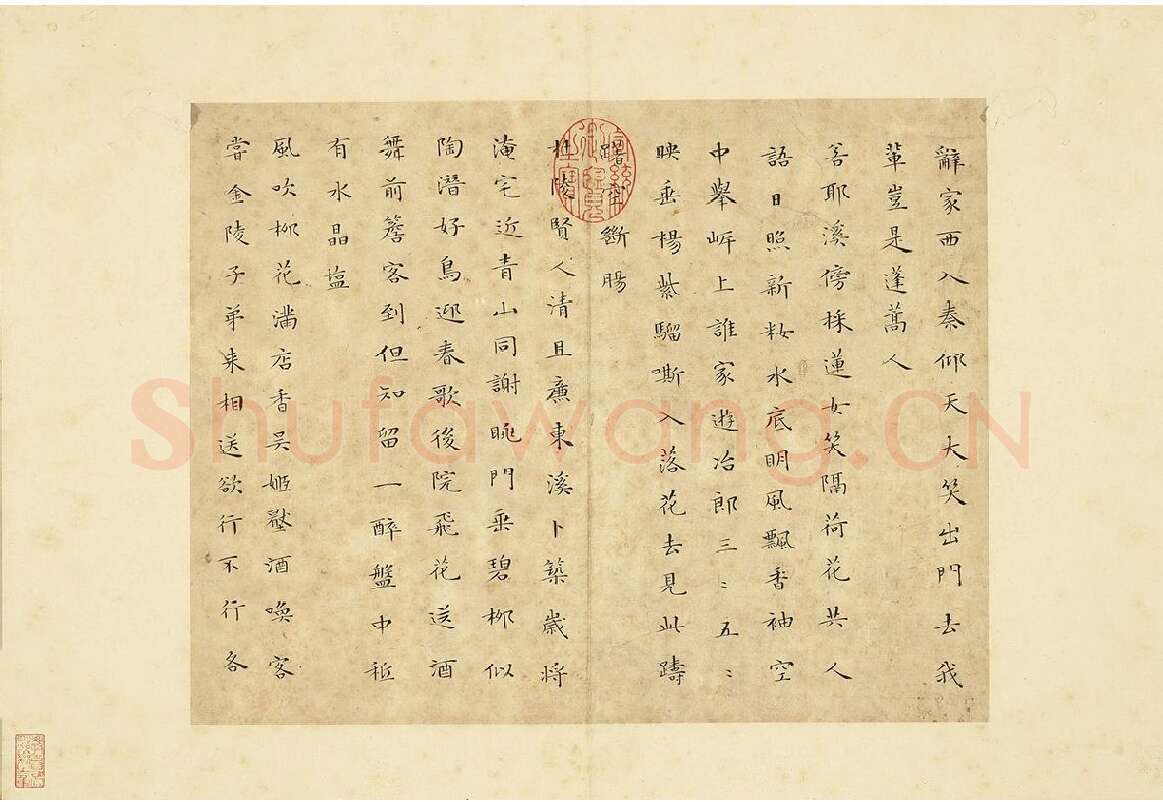 辭家西入秦仰天大笑出門去我
輩豈是蓬蒿人
若耶溪傍採蓮女笑隔荷花共人
語日照新粧水底明風飄香袖空
中舉岸上誰家遊冶郎三〻五〻
映垂楊紫騮嘶入落花去見此躊
躇空斷腸
杜陵賢人清且廉東溪卜築歲將
淹宅近青山同謝眺門垂碧柳似
陶潛好鳥迎春歌後院飛花送酒
舞前簷客到但知留一醉盤中秪
有水晶塩
風吹柳花滿店香吳姬壓酒喚客
嘗金陵子弟来相送欲行不行各
Shufawang.CN